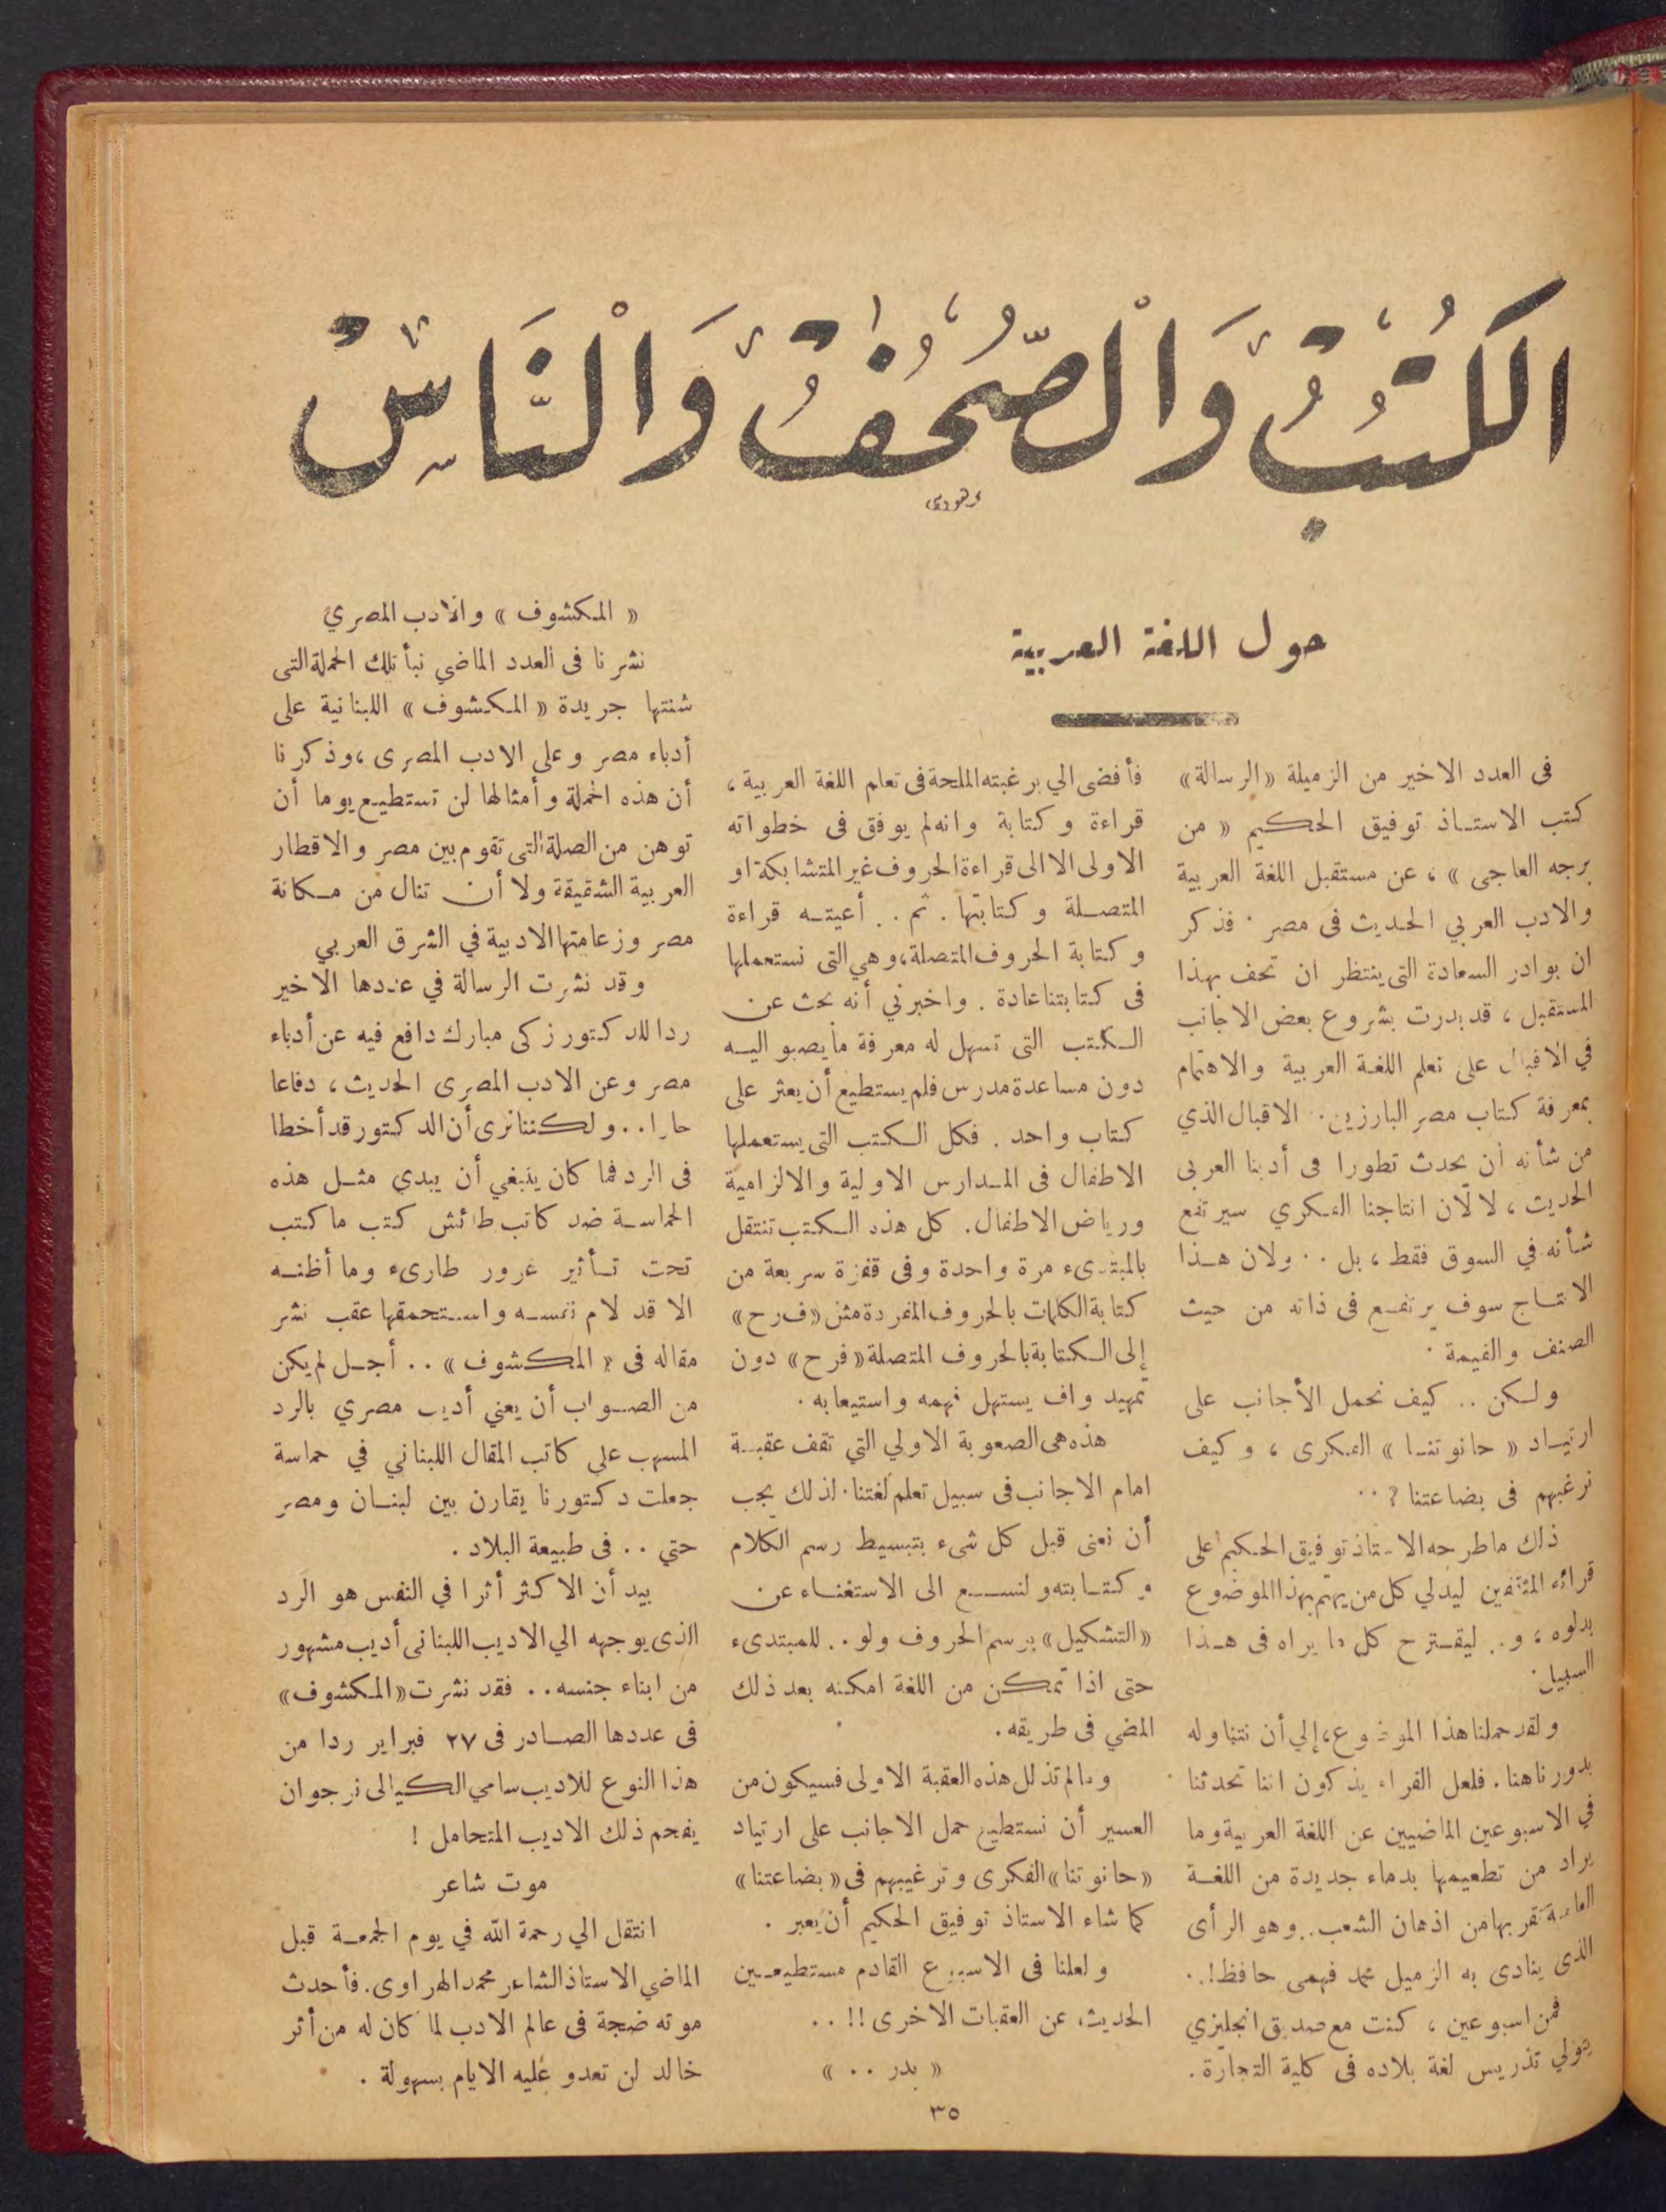 الكُتُبُ وَالصُّحُفُ وَالنَّاسُ
حول اللغة العربية
فى العدد الاخير من الزميلة «الرسالة»
كتب الاستاذ توفيق الحكيم « من
برجه العاجى » ، عن مستقبل اللغة العربية
والادب العربي الحديث فى مصر . فذكر
ان بوادر السعادة التى ينتظر ان تحف بهذا
المستقبل ، قد بدرت بشروع بعض الاجانب
في الاقبال على تعلم اللغة العربية والاهتمام
بمعرفة كتاب مصر البارزين . الاقبال الذي
من شأنه ان يحدث تطورا فى أدبنا العربى
الحديث ، لا لأن انتاجنا الفكري سيرتفع
شأنه في السوق فقط ، بل . . ولان هذا
الانتاج سوف يرتفع فى ذاته من حيث
الصنف والقيمة .
ولكن .. كيف نحمل الأجانب على
ارتياد « حانوتنا » الفكرى ، وكيف
نرغبهم فى بضاعتنا ? . .
ذلك ماطرحه الاستاذ توفيق الحكيم على
قرائه المثقفين ليدلي كل من يهتم بهذا الموضوع
بدلوه ، و.. ليقترح كل ما يراه فى هذا
السبيل .
ولقد حملنا هذا الموضوع ، إلي أن نتناوله
بدورنا هنا . فلعل القراء يذكرون اننا تحدثنا
في الاسبوعين الماضيين عن اللغة العربية وما
يراد من تطعيمها بدماء جديدة من اللغة
العامية تقربها من اذهان الشعب .. وهو الرأى
الذى ينادى به الزميل محمد فهمى حافظ ! . .
فمن اسبوعين ، كنت مع صديق انجليزي
يتولي تدريس لغة بلاده فى كلية التجارة .
فأفضى الي برغبته الملحة فى تعلم اللغة العربية ،
قراءة وكتابة وانه لم يوفق فى خطواته
الاولى الا الى قراءة الحروف غير المتشابكة او
المتصلة وكتابتها . ثم . . أعيته قراءة
وكتابة الحروف المتصلة ، وهي التى نستعملها
فى كتابتنا عادة . واخبرني أنه بحث عن
الكتب التى تسهل له معرفة مايصبو اليه
دون مساعدة مدرس فلم يستطيع أن يعثر على
كتاب واحد . فكل الكتب التى يستعملها
الاطفال فى المدارس الاولية والالزامية
ورياض الاطفال . كل هذه الكتب تنتقل
بالمبتدىء مرة واحدة وفى قفزة سريعة من
كتابة الكلمات بالحروف المفردة مثل «ف ر ح»
إلى الكتابة بالحروف المتصلة «فرح» دون
تمهيد واف يستهل فهمه واستيعابه .
هذه هى الصعوبة الاولي التي تقف عقبة
امام الاجانب فى سبيل تعلم لغتنا . لذلك يجب
أن نعنى قبل كل شىء بتبسيط رسم الكلام
وكتابته ولنسع الى الاستغناء عن
«التشكيل» برسم الحروف ولو . . للمبتدىء
حتى اذا تمكن من اللغة امكنه بعد ذلك
المضي فى طريقه .
ومالم تذلل هذه العقبة الاولى فسيكون من
العسير أن نستطيع حمل الاجانب على ارتياد
«حانوتنا» الفكرى وترغيبهم فى «بضاعتنا»
كما شاء الاستاذ توفيق الحكيم أن يعبر .
ولعلنا فى الاسبوع القادم مستطيعين
الحديث عن العقبات الاخرى !! . .
« بدر . . »
« المكشوف » والادب المصري
نشرنا فى العدد الماضي نبأ تلك الحملة التى
شنتها جريدة « المكشوف » اللبنانية على
أدباء مصر وعلى الادب المصرى ، وذكرنا
أن هذه الحملة وأمثالها لن تستطيع يوما أن
توهن من الصلة التى تقوم بين مصر والاقطار
العربية الشقيقة ولا أن تنال من مكانة
مصر وزعامتها الادبية في الشرق العربي
وقد نشرت الرسالة في عددها الاخير
ردا للدكتور زكى مبارك دافع فيه عن أدباء
مصر وعن الادب المصرى الحديث ، دفاعا
حارا . . ولكننا نرى أن الدكتور قد أخطا
فى الرد فما كان ينبغي أن يبدي مثل هذه
الحماسة ضد كاتب طائش كتب ما كتب
تحت تأثير غرور طارىء وما أظنه
الا قد لام نفسه واستحمقها عقب نشر
مقاله فى « المكشوف » . . أجل لم يكن
من الصواب أن يعني أديب مصري بالرد
المسهب على كاتب المقال اللبناني في حماسة
جعلت دكتورنا يقارن بين لبنان ومصر
حتي . . فى طبيعة البلاد .
بيد أن الاكثر أثرا في النفس هو الرد
الذى يوجهه الي الاديب اللبنانى أديب مشهور
من ابناء جنسه . . فقد نشرت «المكشوف»
فى عددها الصادر فى ٢٧ فبراير ردا من
هذا النوع للاديب سامي الكيالى نرجو ان
يفحم ذلك الاديب المتحامل !
موت شاعر
انتقل الي رحمة الله في يوم الجمعة قبل
الماضي الاستاذ الشاعر محمد الهراوى . فأحدث
موته ضجة فى عالم الادب لما كان له من أثر
خالد لن تعدو عليه الايام بسهولة .
٣٥